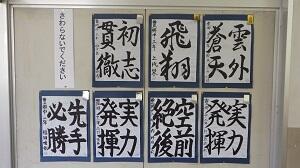 さわらないでください
初志
貫徹
飛翔
雲外
蒼天
先手
必勝
実力
発揮
空前
絶後
実力
発揮